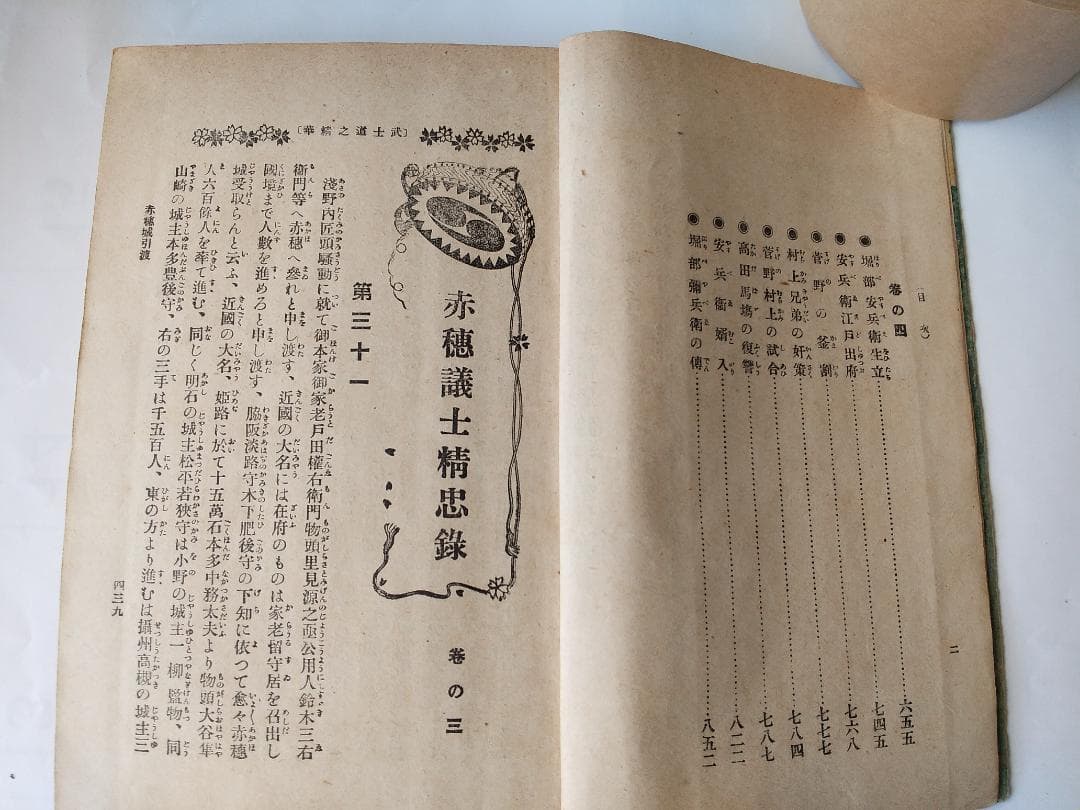 (目次)
卷の四
◉堀部安兵衛生立……六五五
◉安兵衛江戸出府……七四五
◉菅野の釜割……七六八
◉村上兄弟の奸策……七七七
◉菅野村上の試合……七八四
◉高田馬塲の復讐……七八七
◉安兵衞婿入……八二二
◉堀部彌兵衛の傳……八五二
二
〔武士道之精華〕
赤穗議士精忠錄
卷の三
第三十一
淺野内匠頭騷動に就て御本家御家老戸田權右衛門物頭里見源之亟公用人鈴木三右
衛門等へ赤穗へ參れと申し渡す、近國の大名には在府のものは家老留守居を召出し
國境まで人數を進めろと申し渡す、脇阪淡路守木下肥後守の下知に依つて愈々赤穗
城受取らんと云ふ、近國の大名、姫路に於て十五萬石本多中務太夫より物頭大谷隼
人六百餘人を率て進む、同じく明石の城主松平若狹守は小野の城主一柳監物、同
山崎の城主本多豊後守、右の三手は千五百人、東の方より進むは攝州高槻の城主三
赤穗城引渡
四三九